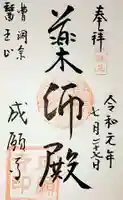 奉拝
令和元年
七月二十七日
薬師殿
曹洞宗
醫王山
成願寺